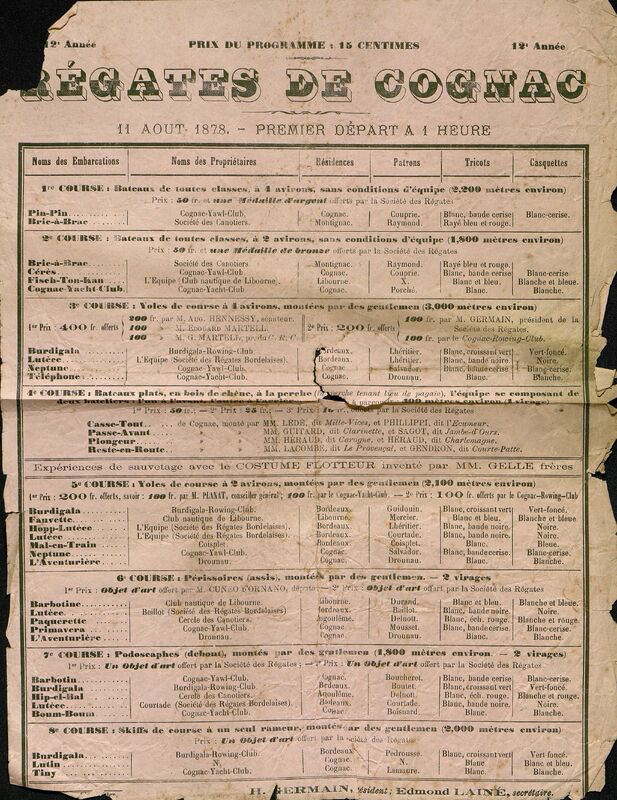 12e Année PRIX DU PROGRAMME : 15 CENTIMES 12e Année
RÉGATES DE COGNAC
11 AOUT 1878. - PREMIER DÉPART A 1 HEURE
Noms des Embarcations Noms des Propriétaires Résidences Patrons Tricots Casquettes
1re COURSE : Bateaux de toutes classes, à 4 avirons, sans conditions d'équipe (2,200 mètres environ)
Prix : 50 fr. et une Médaille d'argent offerts par la Société des Régates
Pin-Pin Cognac-Yawl-Club. Cognac. Couprie. Blanc, bande cerise Blanc-cerise.
Bric-à-Brac Société des Canotiers. Montignac. Raymond. Rayé bleu et rouge.
2e COURSE : Bateaux de toutes classes, à 2 avirons, sans conditions d'équipe (1,800 mètres environ)
Prix : 50 fr. et une Médaille de bronze offerts par la Société des Régates
Bric-à-Brac Société des Canotiers Montignac Raymond. Rayé bleu et rouge.
Cérès Cognac-Yawl-Club. Cognac. Couprie. Blanc, bande cerise Blanc-cerise
Fisch-Ton-Kan L'Equipe (Club nautique de Libourne). Libourne. X. Blanc et bleu. Blanche et bleue.
Cognac-Yacht-Club Cognac-Yacht-Club. Cognac. Porché. Blanc. Blanche.
3e COURSE : Yoles de course à 4 avirons, montées par des gentlemen (3,000 mètres environ)
1er Prix : 400 fr. offerts 200 fr. par M. Aug. HENNESSY, sénateur. 2e Prix : 200 offerts 100 fr. par M. GERMAIN, président de la
100 » M. Edouard MARTELL. Société des Régates.
100 » M. G. MARTELL, 100 fr. par le Cognac-Rowing-Club.
Burdigala Burdigala-Rowing-Club. Bordeaux. Lhéritier. Blanc, croissant vert Vert-foncé.
Lutèce L'Equipe (Société des Régates Bordelaises). Bordeaux. Lhéritier. Blanc, bande noire. Noire.
Neptune Cognac-Yawl-Club. Cognac. Salvador. Blanc, bande cerise. Blanc-cerise.
Téléphone Cognac-Yacht-Club. Cognac. Drounau. Blanc. Blanche.
4e COURSE : Bateaux plats, en bois de chêne, à la perche (la perche tenant lieu de pagaie), l'équipe se composant de
deux bateliers 400 mètres environ (1 virage)
1er Prix : 50 fr. - 2e Prix : 25 fr. - 3e Prix : fr. offerts par la Société des Régates
Casse-Tout de Cognac, monté par MM. LÉDÉ, dit Mille-Vices, et PHILLIPPI, dit l'Ecumeur.
Passe-Avant » » MM. GUITARD, dit Clarinette, et SAGOT, dit Jambe-d'Ours.
Plongeur » » MM. HÉRAUD, dit Carogne, et HÉRAUD, dit Charlemagne.
Reste-en-Route » » MM. LACOMBE, dit Le Provençal, et GENDRON, dit Courte-Patte.
Expériences de sauvetage avec le COSTUME FLOTTEUR inventé par MM. GELLE frères
5e COURSE : Yoles de course à 2 avirons, montées par des gentlemen (2,100 mètres environ)
1er Prix : 200 fr. offerts, savoir : 100 fr. par M. PLANAT, conseiller général; 100 fr. par le Cognac-Yacht-Club. — 2e Prix : 100 fr. offerts par le Cognac-Rowing-Club
Burdigala Burdigala-Rowing-Club. Bordeaux. Guidouin. Blanc, croissant vert. Vert-foncé.
Fanvette Club nautique de Libourne. Libourne. Mercier. Blanc et bleu. Blanche et bleue.
Hopp-Lutèce L'Equipe (Société des Régates Bordelaises). Bordeaux. Lhéritier. Blanc, bande noire. Noire.
Lutèce L'Equipe (Société des Régates Bordelaises). Bordeaux. Courtade. Blanc, bande noire. Noire.
Mal-en-Train Coisplet. Bordeaux. Coisplet. Blanc. Bleue.
Neptune Cognac-Yawl-Club. Cognac. Salvador. Blanc, bande cerise. Blanc-cerise.
L'Aventurière Drounau. Cognac. Drounau. Blanc. Blanche.
6e COURSE : Périssoires (assis), montées par des gentlemen. — 2 virages
1er Prix : Objet d'art offert par M. CUNEO D'ORNANO, député — 2e Prix : Objet d'art offert par la Société des Régates
Barbotine Club nautique de Libourne. Libourne. Durand. Blanc et bleu. Blanche et bleue.
Lutèce Beillot (Société des Régates Bordelaises) Bordeaux. Baillot. Blanc, bande noire. Noire.
Paquerette Cercle des Canotiers. Angoulême. Delnott. Blanc, éch. rouge. Blanche.
Primavera Cognac-Yawl-Club. Cognac. Mousset. Blanc, bande cerise. Blanc-cerise.
L'Aventurière Drounau. Cognac. Drounau. Blanc. Blanche.
7e COURSE : Podoscaphes (debout), montés par des gentlemen (1,800 mètres environ. — 2 virages)
1er Prix : Un Objet d'art offert par la Société des Régates — 2e Prix : Un Objet d'art offert par la Société des Régates
Barbotin Cognac-Yawl-Club. Cognac. Boucheret. Blanc, bande cerise. Blanc-cerise.
Burdigala Burdigala-Rowing-Club. Bordeaux. Boutet. Blanc, croissant vert. Vert-foncé.
Hip-el-Bal Cercle des Canotiers. Angoulême. Delnott. Blanc, éch. rouge. Blanche.
Lutèce Courtade (Société des Régates Bordelaises). Bordeaux. Courtade. Blanc, bande noire. Noire.
Boum-Boum Cognac-Yacht-Club. Cognac. Boisnard. Blanc. Blanche.
8e COURSE : Skiffs de course à un seul rameur, montés par des gentlemen (2,000 mètres environ)
Prix : Un Objet d'art offert par la Société des Régates
Burdigala Burdigala-Rowing-Club. Bordeaux. Pédrousse. Blanc, croissant vert. Vert-foncé.
Lutin N. Cognac. N. Blanc et bleu. Blanche.
Tiny Cognac-Yacht-Club. Cognac. Lamaure. Blanc. Blanche.
H. GERMAIN, président; Edmond LAINÉ, secrétaire.